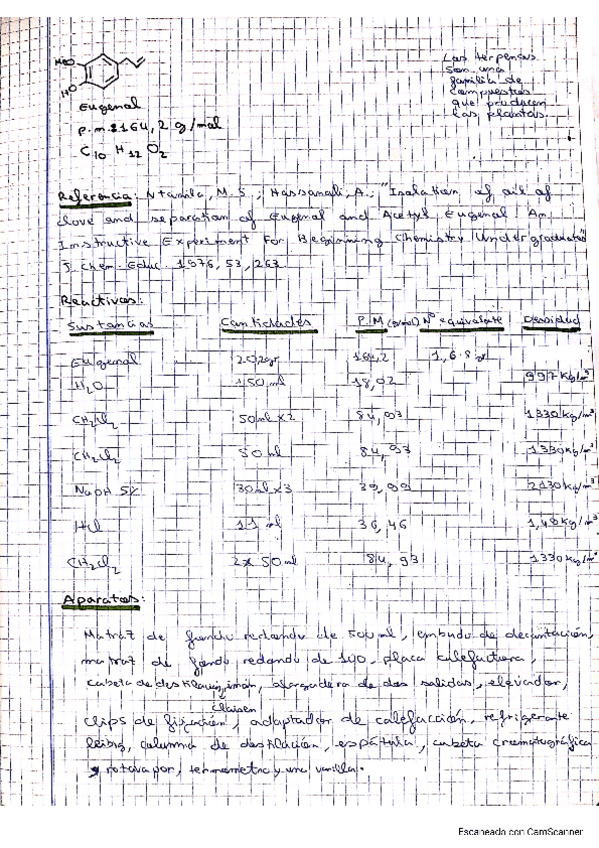 MeO
HO
Eugenol
p.m: 164,2 g/mol
C10 H12 O2
Los terpenos
son una
familia de
compuestos
que producen
las plantas.
Referencia: Ntamila, M. S.; Hassanali, A., "Isolation of oil of
clove and separation of Eugenol and Acetyl Eugenol An
Instructive Experiment for Beginning Chemistry Undergraduates"
J. Chem. Educ. 1976, 53, 263
Reactivos:
Sustancias Cantidades P.M (g/mol) Nº equivalente Densidad
Eugenol 164,2
H2O 150 ml 18,02 997 Kg/m3
CH2Cl2 50ml x 2 84,93 1330 Kg/m3
CH2Cl2 50 ml 84,93 1330 Kg/m3
NaOH 5% 30ml x 3 39,99 2130 Kg/m3
Hcl 11 ml 36,46 Kg/m3
CH2Cl2 2x 50 ml 84,93 1330 Kg/m3
Aparatos:
Matraz de fondo redondo de 500 ml, embudo de decantación,
matraz de fondo redondo de 100, placa calefactora,
cabeta de destilación, alargadera de dos salidas, elevador,
claisen
clips de fijación, adaptador de calefacción, refrigerante
leibig, columna de destilación, espátula, cubeta cromatográfica
y rotavapor, termometro y una varilla.
Escaneado con CamScanner